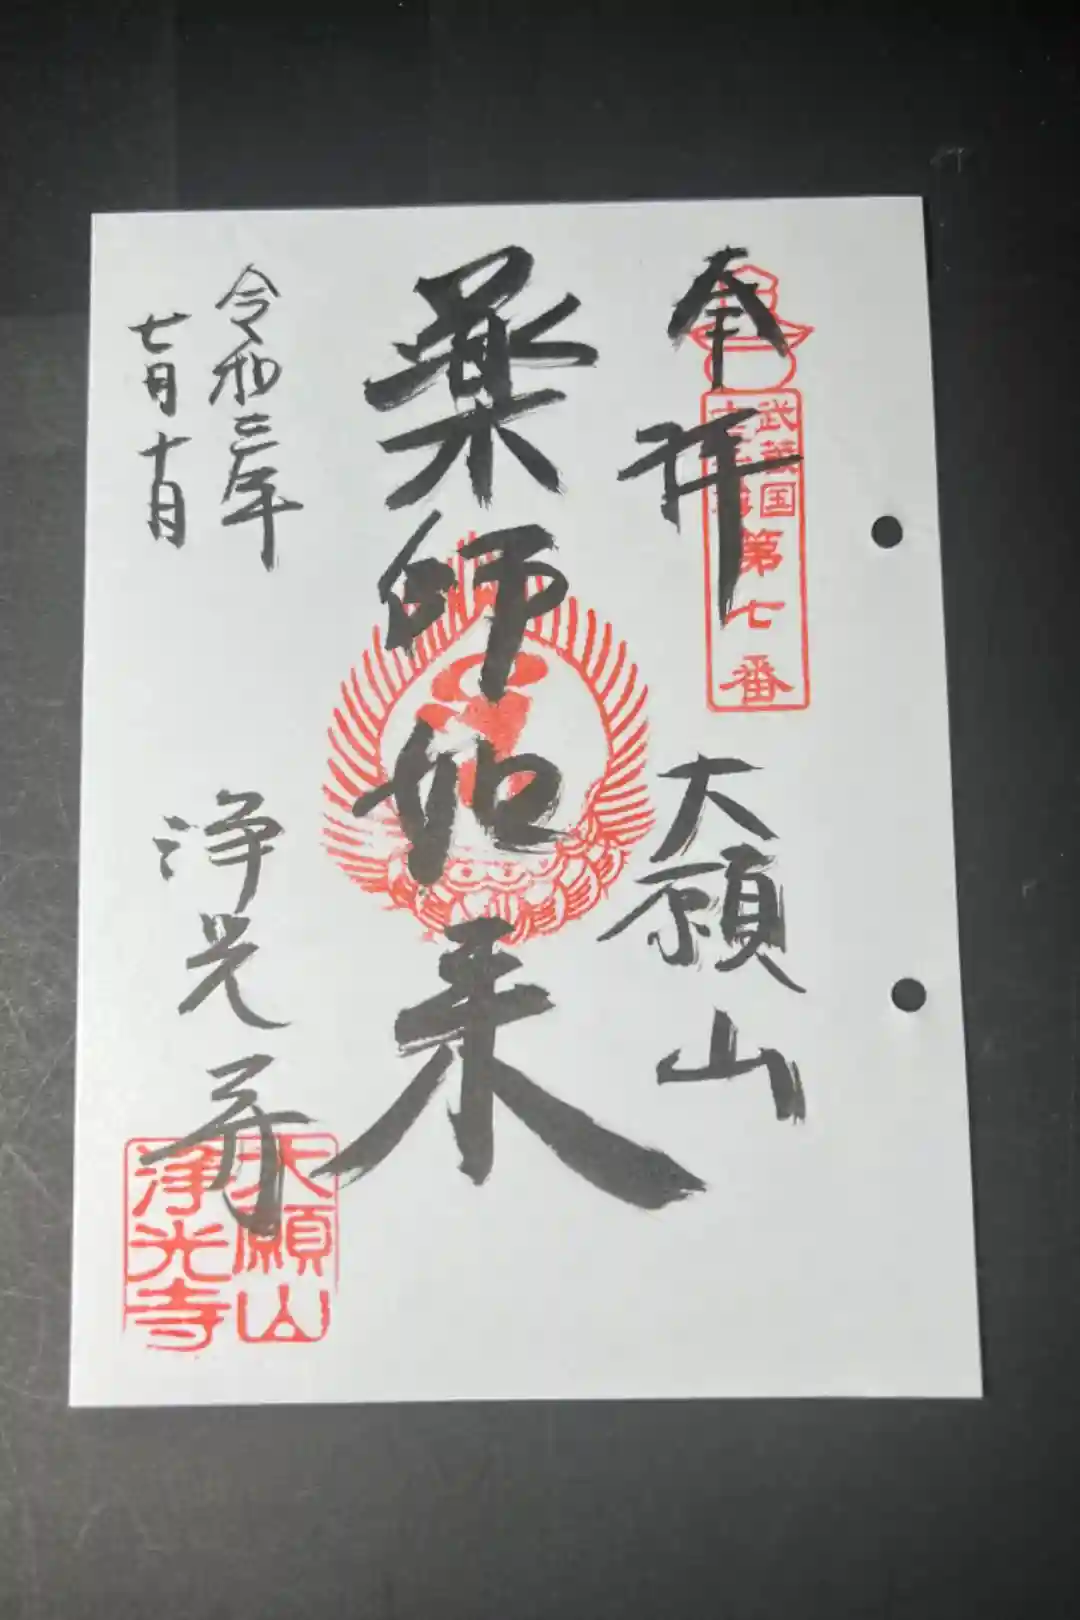 奉拝
武蔵国
第七番
大願山
薬師如来
令和三年
七月十日
浄光寺
大願山
浄光寺